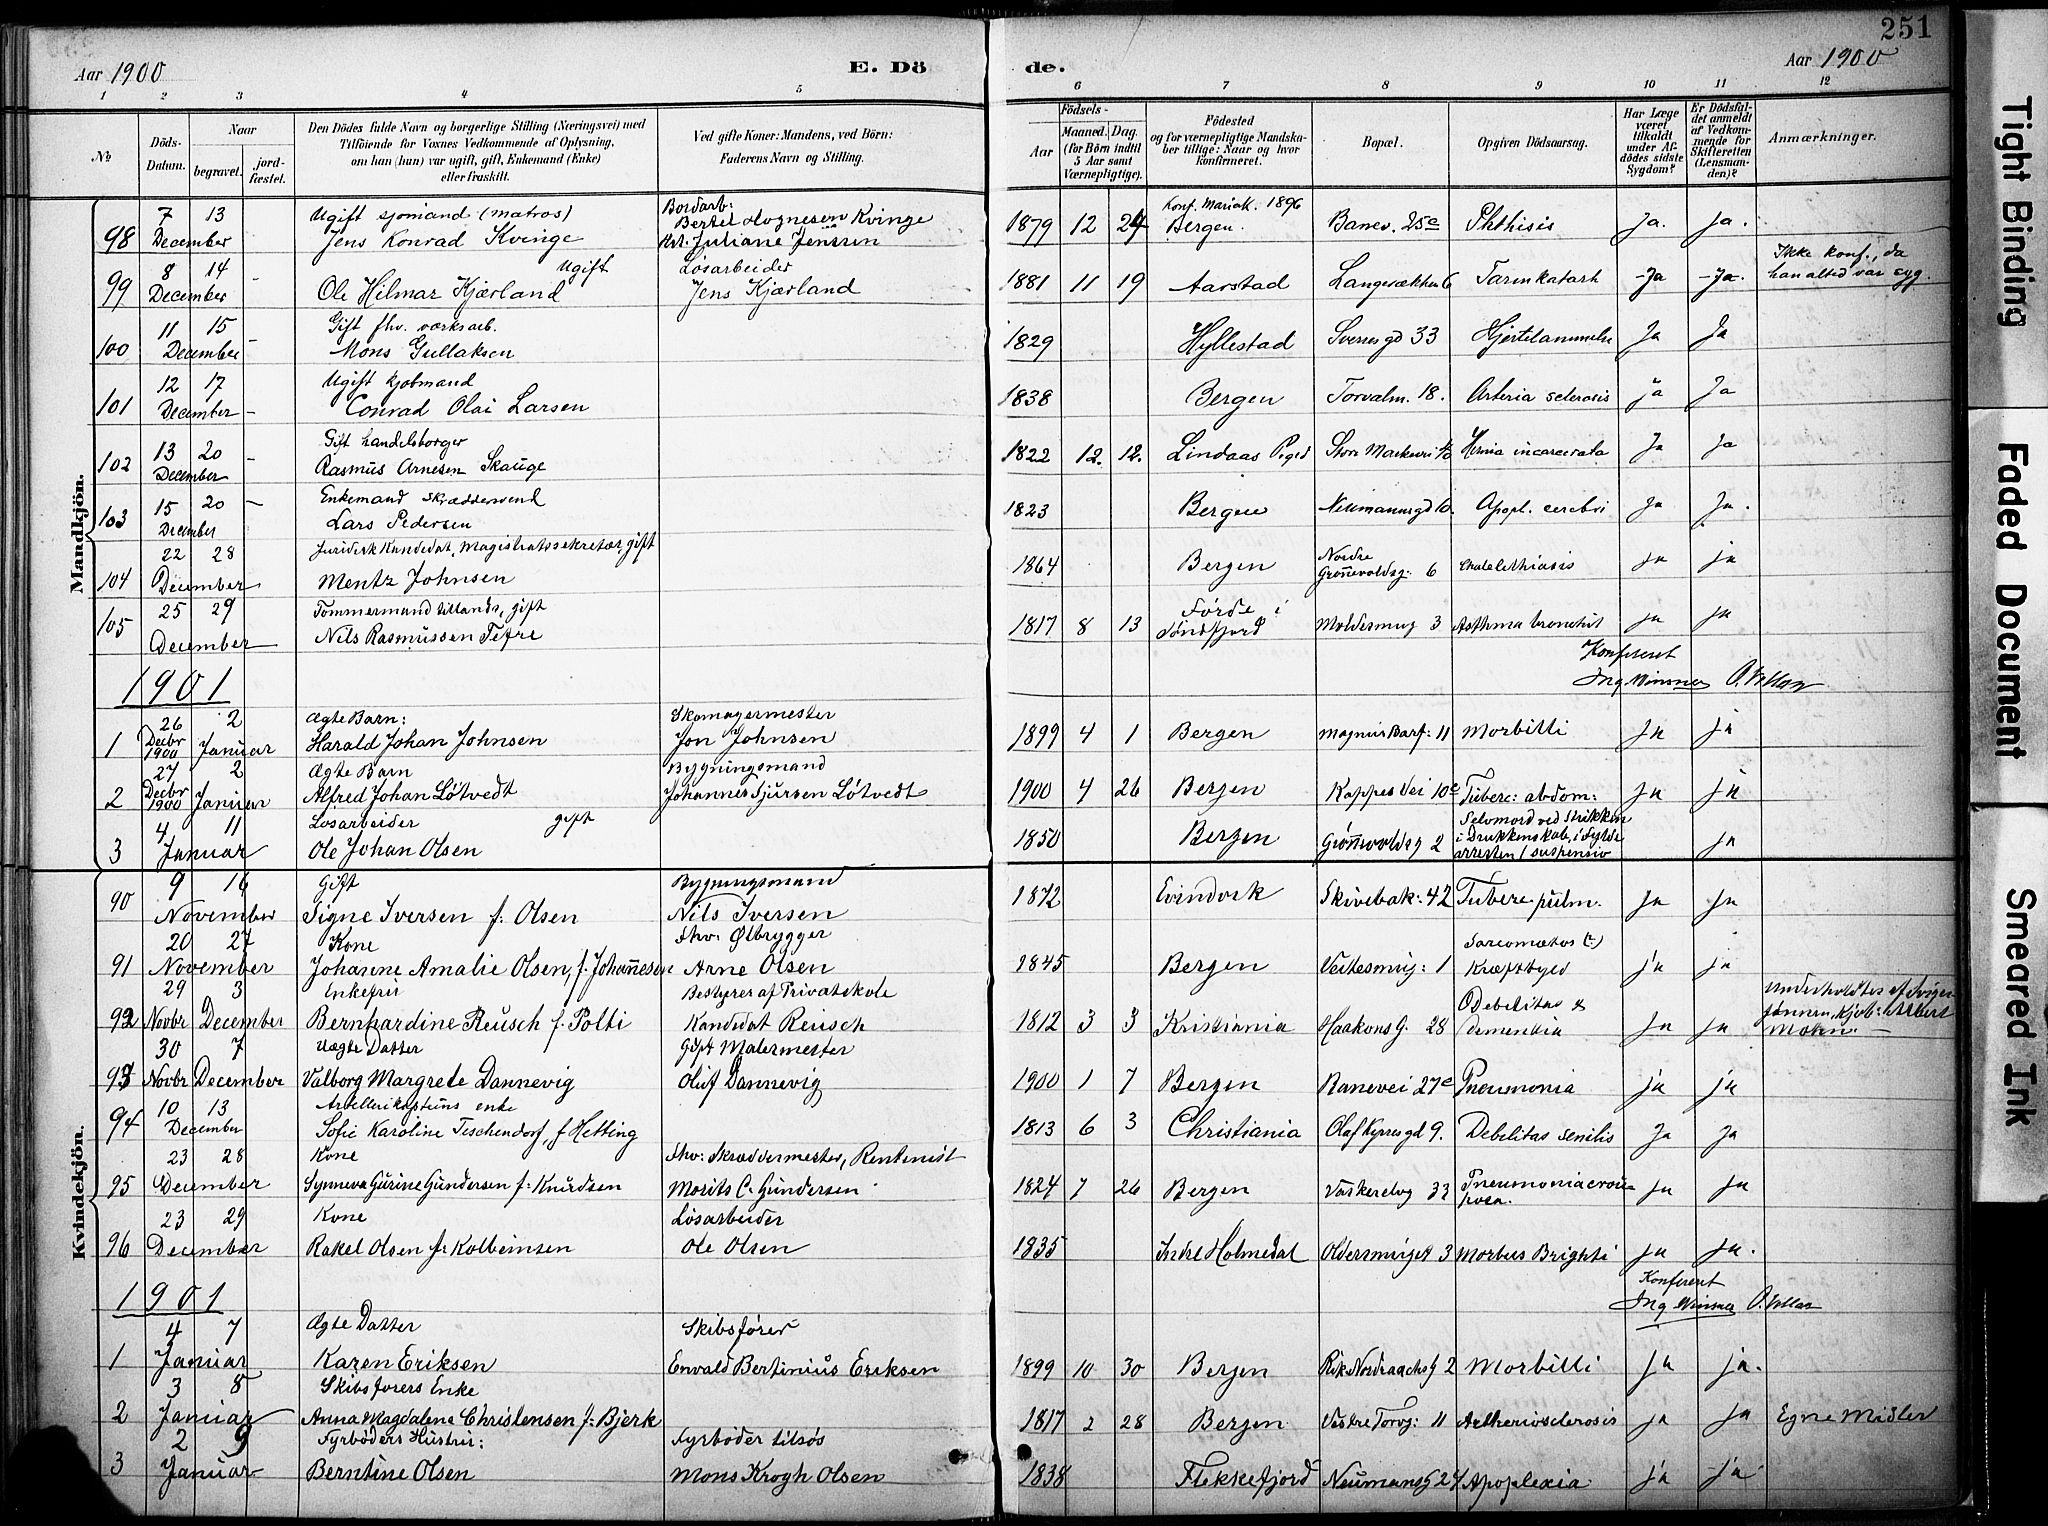 251
Aar 1900
E. Dö
de.
Aar 1900
1 2 3 4 5 6 7 8 9 10 11 12
No
Döds-Datum.
Naar
begravet.
jord-fæstet.
Den Dödes fulde Navn og borgerlige Stilling (Næringsvei) med
Tilföiende for Voxnes Vedkommende af Oplysning,
om han (hun) var ugift, gift, Enkemand (Enke)
eller fraskilt.
Ved gifte Koner: Mandens, ved Börn:
Faderens Navn og Stilling.
Födsels-
Aar
Maaned. Dag.
(for Börn indtil
5 Aar samt
Værnepligtige).
Födested
og for værnepligtige Mandska-
ber tillige: Naar og hvor
konfirmeret.
Bopæl.
Opgiven Dödsaarsag.
Har Læge
været
tilkaldt
under Af-
dödes sidste
Sygdom?
Er Dödsfal-
det anmeldt
af Vedkom-
mende for
Skifteretten
(Lensman-
den)?
Anmærkninger.
Mandkjön.
7 13 Ugift sjömand (matros) Bordarb: Konf. Mariak. 1896
98 December Jens Konrad Kvinge Bertel Hognesen Kvinge Juliane Jensen 1879 12 24 Bergen. Banev. 25c Phthisis Ja. ja.
8 14 - Ugift Løsarbeider Ikke konf., da
99 December Ole Hilmar Kjærland Jens Kjærland 1881 11 19 Aarstad 6 Tarmkatarh Ja Ja. han altid var syg.
11 15 - Gift fhv. værksarb.
100 December Mons Gullaksen 1829 Hyllestad Sverresgd 33 Ja Ja
12 17 Ugift kjøbmand
101 December - Conrad Olai Larsen 1838 Bergen Torvalm. 18. Arteria sclerosis ja Ja
13 20 - Gift handelsborger
102 December Rasmus Arnesen Skauge 1822 12. 12. Lindaas Pgjd Hernia incarcerata Ja Ja
15 20 - Enkemand skræddersvend
103 December Lars Pedersen 1823 Bergen Neumannsgd 10. Apopl. cerebri Ja Ja.
22 28 Juridisk Kandedat, Magistratssekretær, gift Nordre
104 December Mentz Johnsen 1864 Bergen Grønnevoldsg: 6 ja ja
25 29 Tømmermand tillands, gift Førde i
105 December Nils Rasmussen Tefre 1817 8 13 Søndfjord 3 Asthma bronchit ja ja
Konfereret
1901
26 2 Ægte Barn: Skomagermester
1 Decbr 1900 Januar Harald Johan Johnsen Jon Johnsen 1899 4 1 Bergen Magnus Barf: 11 Morbilli Ja ja
27 2 Ægte Barn Bygningsmand
2 Decbr 1900 Januar Alfred Johan Løtvedt Johannes Sjursen Løtvedt 1900 4 26 Bergen Kappes Vei 10c Tuberc: abdom: Ja ja
4 11 Løsarbeider gift Selvmord ved
3 Januar Ole Johan Olsen 1850 Bergen Grønnevoldsg 2 i Drukkenskab, i arresten / suspensio ja
Kvindekjön.
9 16 Gift Bygningsmand
90 November Signe Iversen f: Olsen Nils Iversen 1872 Evindvik Skivebak: 42 Tuberc pulm. Ja Ja
20 27 Kone Fhv: Ølbrygger Sarcomatos (?)
91 November Johanne Amalie Olsen, f. Johannesen Arne Olsen 1845 Bergen Veitesmug: 1 ja ja
29 3 Enkefru Bestyrer af Privatskole Debilitas &
92 Novbr December Bernhardine Reusch f. Polti Kandedat Reusch 1812 3 3 Kristiania Haakons G. 28 dementia Ja Ja Underholdtes af Sviger-
sønnen, kjøb: Albert
Mohn. -
30 7 Uægte Datter Gift Malermester
93 Novbr December Valborg Margrete Dannevig Oluf Dannevig 1900 1 7 Bergen Banevei 27c Pneumonia ja ja
10 13 Artillerikapteins enke
94 December Sofie Karoline Tischendorf, f Hetting 1813 6 3 Christiania Olaf Kyrresgd 9. Debilitas senilis Ja Ja
23 28 Kone Fhv: Skræddermester, Rentenist
95 December Synneva Gurine Gundersen f: Knudsen Morits C. Gundersen 1824 7 26 Bergen Vaskerelvg 33 Pneumonia crouposa. ja ja
23 29 Kone Løsarbeider
96 December Rakel Olsen f: Kolbeinsen Ole Olsen 1835 Indre Holmedal Oldersmuget 3 Morbus Brighti ja ja.
Konfereret
1901
4 7 Ægte Datter Skibsfører
1 Januar Karen Eriksen Envald Bertinius Eriksen 1899 10 30 Bergen Rik. Nordraachs G 2 Morbilli Ja ja.
3 8 Skibsførers Enke
2 Januar Anna Magdalene Christensen f: Bjerk 1817 2 28 Bergen Vestre Torvg: 11 Artheriosclerosis ja ja Egne Midler
2 9 Fyrbøders Hustru: Fyrbøder tilsøs
3 Januar Berntine Olsen Mons Krogh Olsen 1838 Flekkefjord Neumans G 24 Apoplexia ja ja
Tight Binding
Faded Document
Smeared Ink